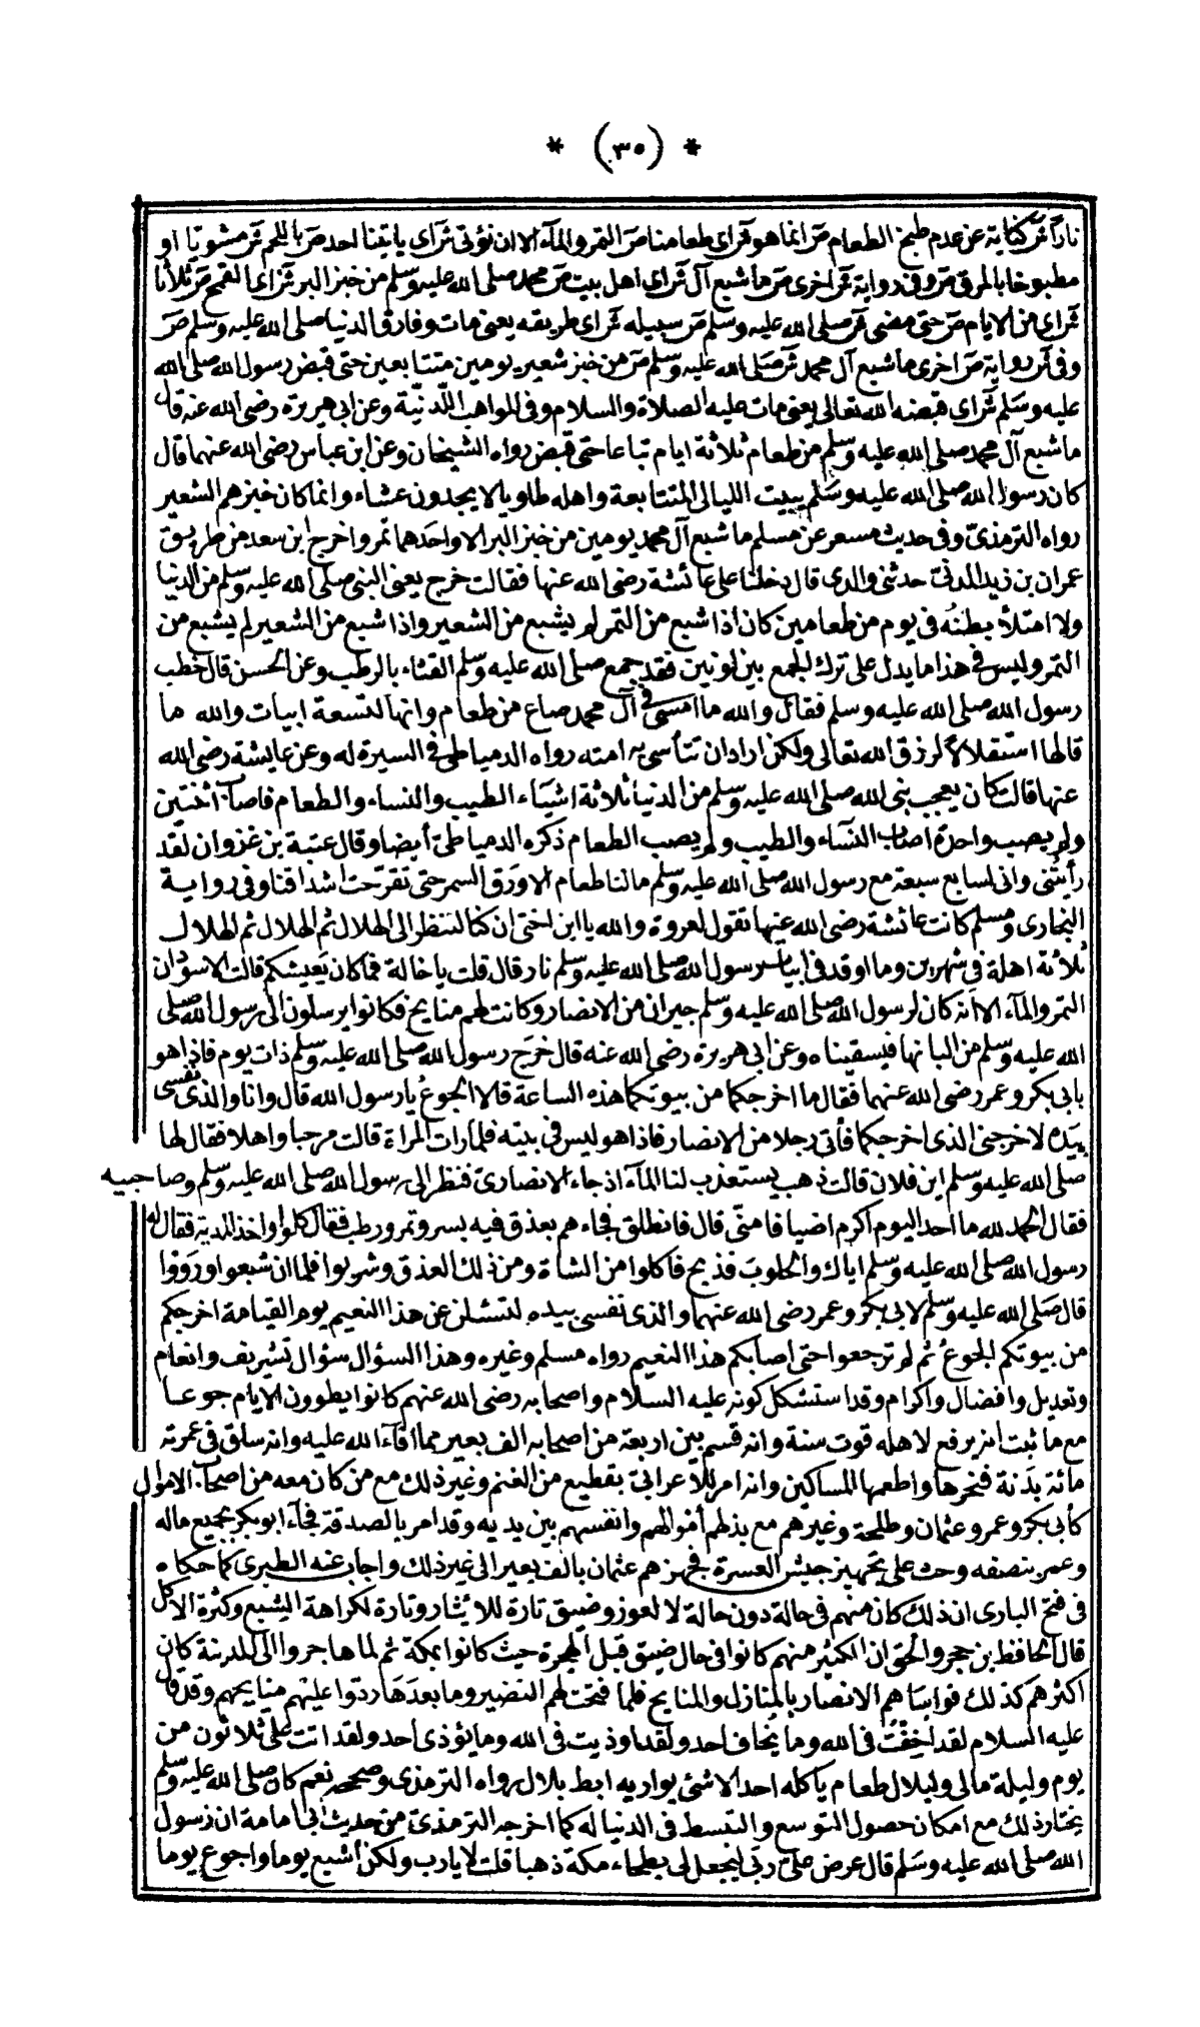 * (٣٥) *
نارا ش كناية عن عدم طبخ الطعام ص انما هو ش اى طعامنا ص التمر والمآء الا ان نؤتى ش اى يأتينا احد ص باللحم ش مشويا او
مطبوخا بالمرق ص وفى رواية ش اخرى ص ما شبع آل ش اى اهل بيت ص محمد صلى الله عليه وسلم من خبز البر ش اى القمح ص ثلاثا
ش اى من الايام ص حتى مضى ش صلى الله عليه وسلم ص سبيله ش اى طريقه يعنى مات وفارق الدنيا صلى الله عليه وسلم ص
وفى ش رواية ص اخرى ما شبع آل محمد ش صلى الله عليه وسلم ص من خبز شعير يومين متتابعين حتى قبض رسول الله صلى الله
عليه وسلم ش اى قبضه الله تعالى يعنى مات عليه الصلاة والسلام وفى المواهب اللدنية وعن ابى هريرة رضى الله عنه قال
ما شبع آل محمد صلى الله عليه وسلم من طعام ثلاثة ايام تباعا حتى قبض رواه الشيخان وعن ابن عباس رضى الله عنهما قال
كان رسول الله صلى الله عليه وسلم يبيت الليالى المتتابعة واهله طاويا لا يجدون عشاء وانما كان خبزهم الشعير
رواه الترمذى وفى حديث مسعر عن مسلم ما شبع آل محمد يومين من خبز البر الا واحدهما تمر واخرج ابن سعد من طريق
عمران بن زيد المدنى حدثنى والدى قال دخلنا على عائشة رضى الله عنها فقالت خرج يعنى النبى صلى الله عليه وسلم من الدنيا
ولا امتلأ بطنه فى يوم من طعامين كان اذا شبع من التمر لم يشبع من الشعير واذا شبع من الشعير لم يشبع من
التمر وليس فى هذا ما يدل على ترك الجمع بين لونين فقد جمع صلى الله عليه وسلم القثاء بالرطب وعن الحسن قال خطب
رسول الله صلى الله عليه وسلم فقال والله ما امسى فى آل محمد صاع من طعام وانها لتسعة ابيات والله ما
قالها استقلالا لرزق الله تعالى ولكن اراد ان تتأسى به امته رواه الدمياطى فى السيرة له وعن عايشة رضى الله
عنها قالت كان يعجب نبى الله صلى الله عليه وسلم من الدنيا ثلاثة اشيآء الطيب والنساء والطعام فاصاب اثنتين
ولم يصب واحدة اصاب النسآء والطيب ولم يصب الطعام ذكره الدمياطى أيضا وقال عتبة بن غزوان لقد
رأيتنى وانى لسابع سبعة مع رسول الله صلى الله عليه وسلم مالنا طعام الا ورق السمر حتى تقرحت اشداقنا وفى رواية
البخارى ومسلم كانت عائشة رضى الله عنها تقول لعروة والله يا ابن اختى ان كنا لننظر الى الهلال ثم الهلال ثم الهلال
ثلاثة اهلة فى شهرين وما اوقد فى ابيات رسول الله صلى الله عليه وسلم نار قال قلت يا خالة فما كان يعيشكم قالت الاسودان
التمر والمآء الا انه كان لرسول الله صلى الله عليه وسلم جيران من الانصار وكانت لهم منايح فكانوا يرسلون الى رسول الله صلى
الله عليه وسلم من البانها فيسقيناه وعن ابى هريرة رضى الله عنه قال خرج رسول الله صلى الله عليه وسلم ذات يوم فاذا هو
بابى بكر وعمر رضى الله عنهما فقال ما اخرجكما من بيوتكما هذه الساعة قالا الجوع يا رسول الله قال وانا والذى نفسى
بيده لاخرجنى الذى اخرجكما فأتى رجلا من الانصار فاذا هو ليس فى بيته فلما رات المراة قالت مرحبا واهلا فقال لها
صلى الله عليه وسلم اين فلان قالت ذهب يستعذب لنا المآء اذ جاء الانصارى فنظر الى رسول الله صلى الله عليه وسلم وصاحبيه
فقال الحمد لله ما احد اليوم اكرم اضيافا منى قال فانطلق فجاءهم بعذق فيه بسر وتمر ورطب فقال كلوا واخذ المدية فقال له
رسول الله صلى الله عليه وسلم اياك والحلوب فذبح فاكلوا من الشاة ومن ذلك العذق وشربوا فلما ان شبعوا ورووا
قال صلى الله عليه وسلم لابى بكر وعمر رضى الله عنهما والذى نفسى بيده لتسئلن عن هذا النعيم يوم القيامة اخرجكم
من بيوتكم الجوع ثم لم ترجعوا حتى اصابكم هذا النعيم رواه مسلم وغيره وهذا السؤال سؤال تشريف وانعام
وتعديل وافضال واكرام وقد استشكل كونه عليه السلام واصحابه رضى الله عنهم كانوا يطوون الايام جوعا
مع ما ثبت انه يرفع لاهله قوت سنة وانه قسم بين اربعة من اصحابه الف بعير مما افاء الله عليه وانه ساق فى عمرته
مائة بدنة فنحرها واطعمها المساكين وانه امر للأعرابى بقطيع من الغنم وغير ذلك مع من كان معه من اصحاب الاموال
كأبى بكر وعمر وعثمان وطلحة وغيرهم مع بذلهم أموالهم وانفسهم بين يديه وقد امر بالصدقة فجآء ابو بكر بجميع ماله
وعمر بنصفه وحث على تجهيز جيش العسرة فجهزهم عثمان بالف بعير الى غير ذلك واجاب عنه الطبرى كما حكاه
فى فتح البارى ان ذلك كان منهم فى حالة دون حالة لا لعوز وضيق تارة للايثار وتارة لكراهة الشبع وكثرة الاكل
قال الحافظ بن حجر والحق ان الكثير منهم كانوا فى حال ضيق قبل الهجرة حيث كانوا بمكة ثم لما هاجروا الى المدينة كان
اكثرهم كذلك فواساهم الانصار بالمنازل والمنايح فلما فتحت لهم النضير وما بعدها ردوا عليهم منايحهم وقد قال
عليه السلام لقد اخفت فى الله وما يخاف احد ولقد اوذيت فى الله وما يؤذى احد ولقد اتت على ثلاثون من
يوم وليلة مالى ولبلال طعام يأكله احد الا شئ يواريه ابط بلال رواه الترمذى وصححه نعم كان صلى الله عليه وسلم
يختار ذلك مع امكان حصول التوسع والتبسط فى الدنيا له كما اخرجه الترمذى من حديث ابى امامة ان رسول
الله صلى الله عليه وسلم قال عرض على ربى ليجعل لى بطحاء مكة ذهبا قلت لا يارب ولكن أشبع يوما واجوع يوما